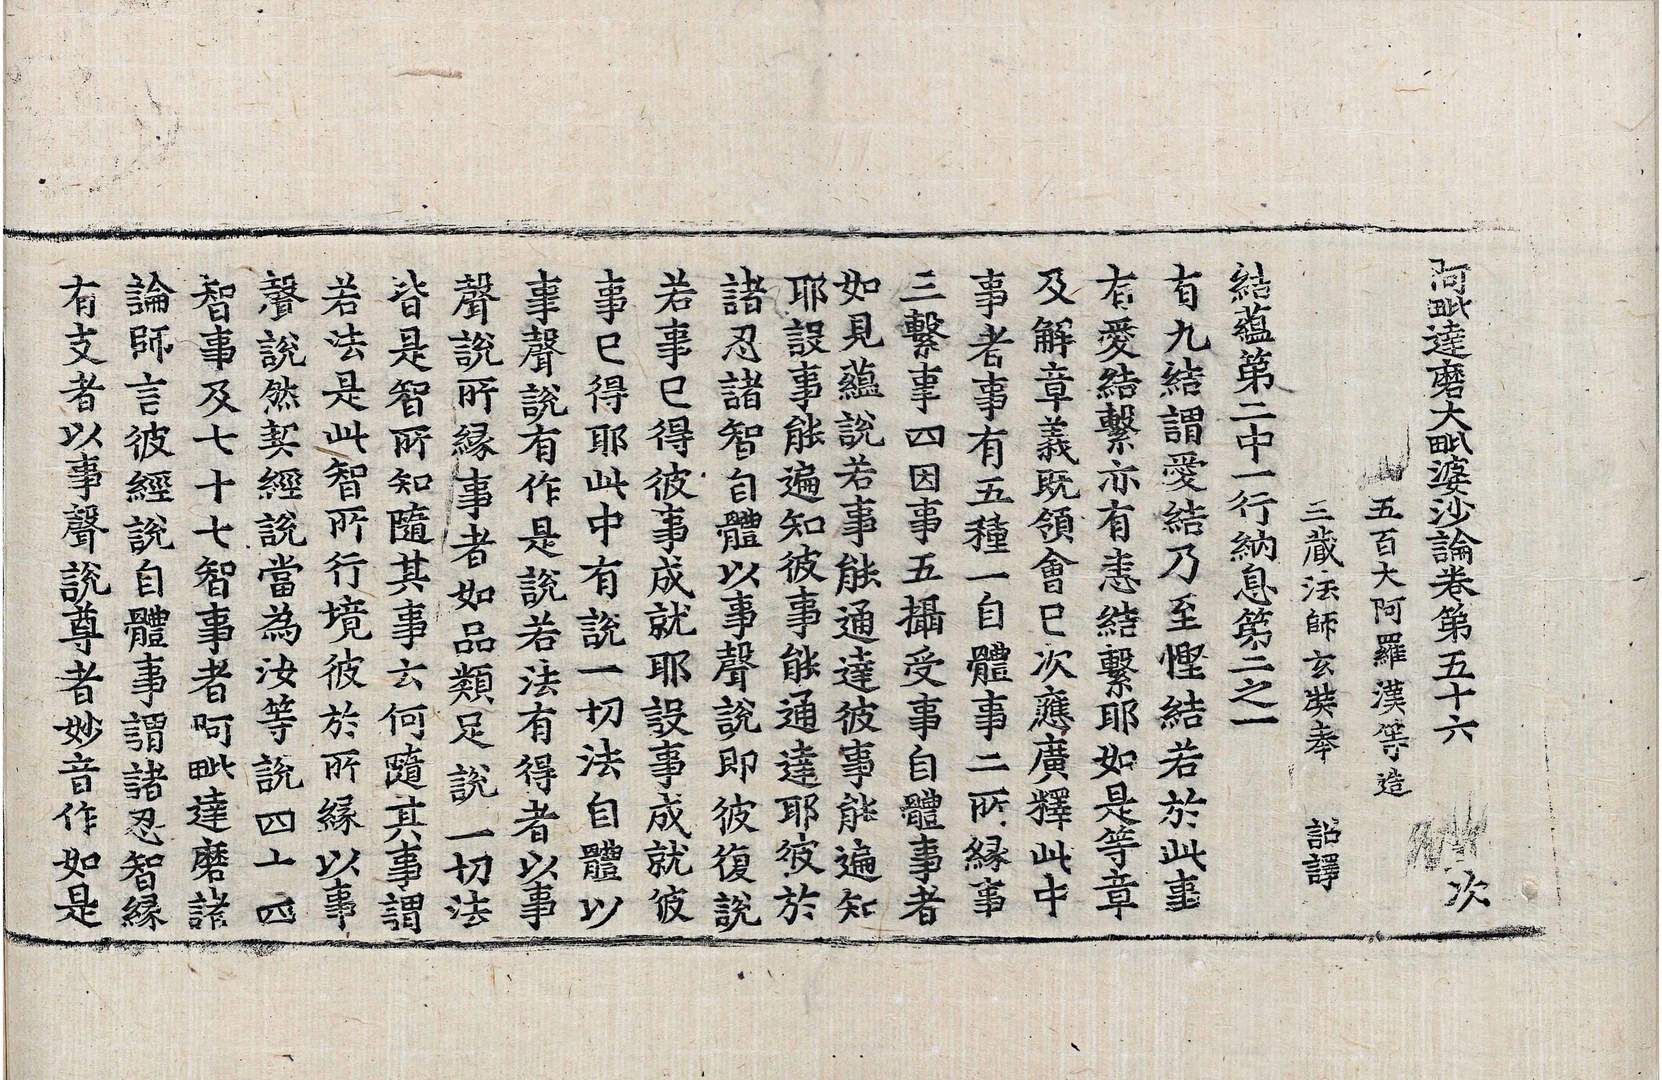 阿毗達磨大毗婆沙論卷第五十六　次
五百大阿羅漢等造
三藏法師玄奘奉　詔譯
結蘊第二中一行納息第二之一
有九結謂愛結乃至慳結若於此事
有愛結繫亦有恚結繫耶如是等章
及解章義既領會已次應廣釋此中
事者事有五種一自體事二所緣事
三繫事四因事五攝受事自體事者
如見蘊說若事能通達彼事能遍知
耶設事能遍知彼事能通達耶彼於
諸忍諸智自體以事聲說即彼復說
若事已得彼事成就耶設事成就彼
事已得耶此中有說一切法自體以
事聲說有作是說若法有得者以事
聲說所緣事者如品類足說一切法
皆是智所知隨其事云何隨其事謂
若法是此智所行境彼於所緣以事
聲說然契經說當為汝等說四十四
智事及七十七智事者阿毗達磨諸
論師言彼經說自體事謂諸忍智緣
有支者以事聲說尊者妙音作如是